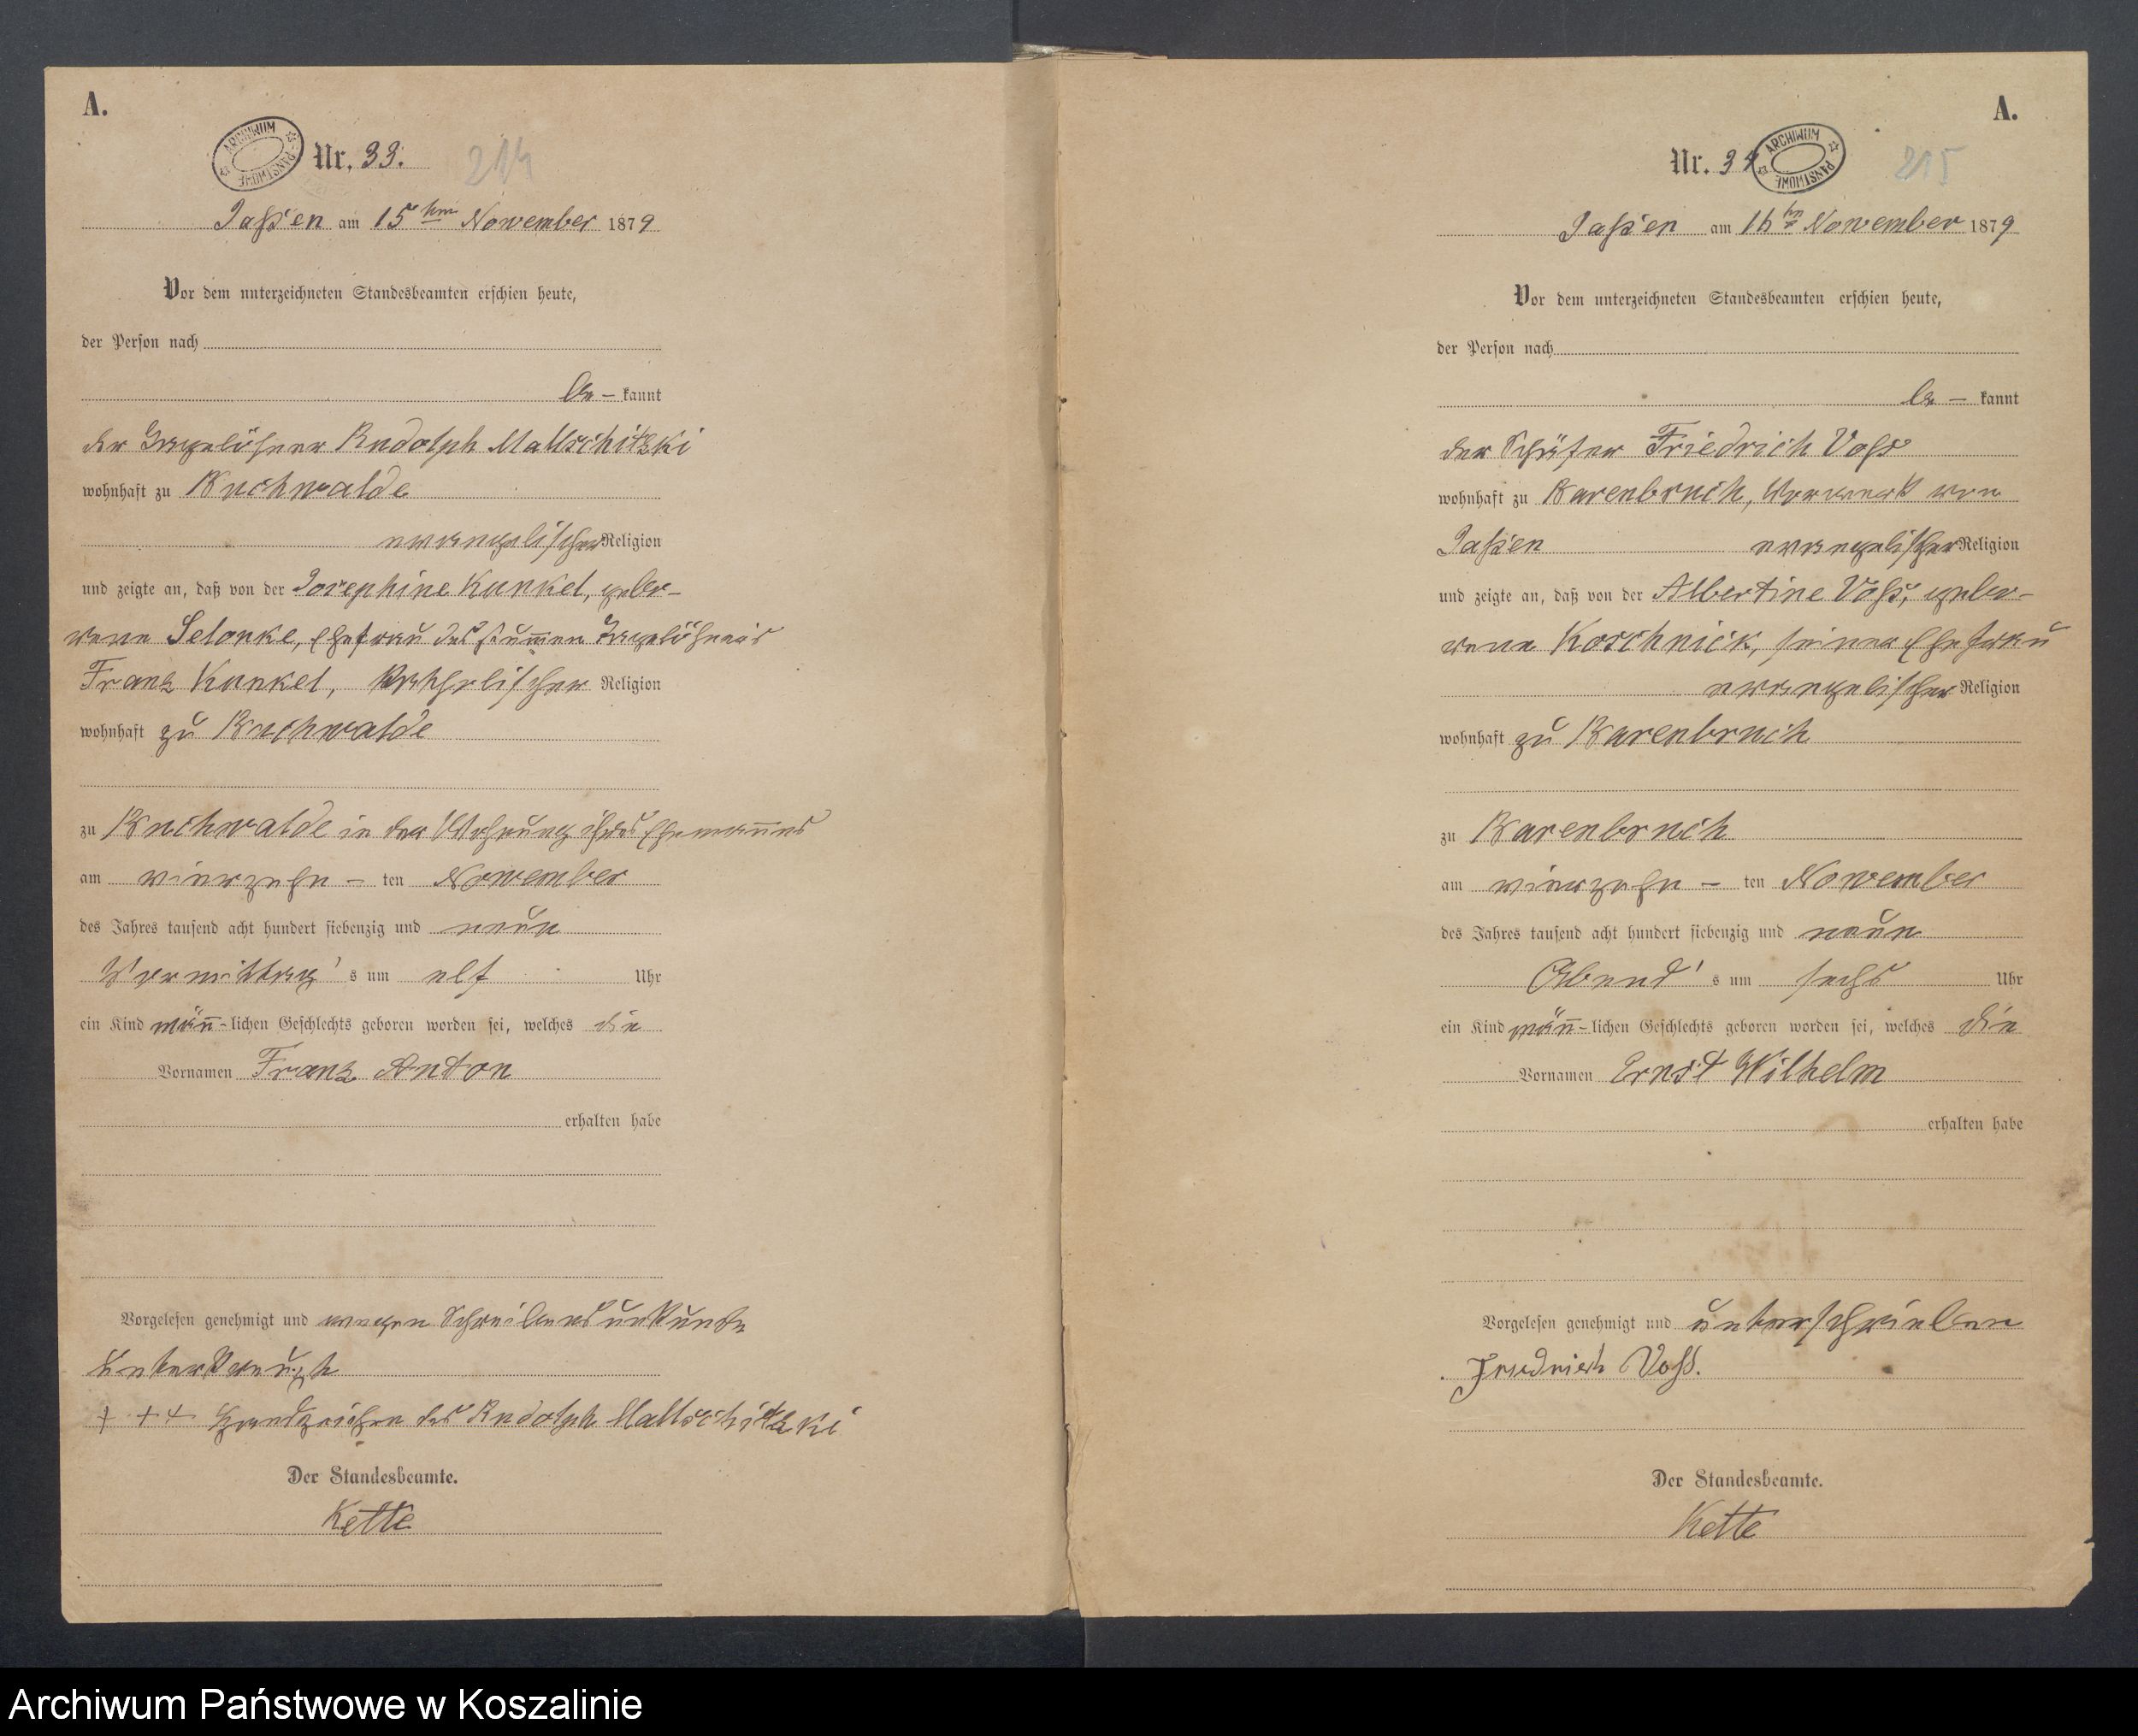 A.
ARCHIWUM PAŃSTWOWE
Nr. 33. 214
Jassen am 15ten November 1879
Vor dem unterzeichneten Standesbeamten erschien heute,
der Person nach
be – kannt
der Tagelöhner Rudolph Mallschitzki
wohnhaft zu Buchwalde
evangelischer Religion
und zeigte an, daß von der Josephine Kunkel, gebo-
rene Selonke, Ehefrau des stummen Tagelöhners
Franz Kunkel, katholischer Religion
wohnhaft zu Buchwalde
zu Buchwalde in der Wohnung ihres Ehemannes
am vierzehn – ten November
des Jahres tausend acht hundert siebenzig und neun
Vormittag's um elf Uhr
ein Kind männ-lichen Geschlechts geboren worden sei, welches die
Vornamen Franz Anton
erhalten habe
Vorgelesen genehmigt und wegen Schreibensunkunde
unterkreuzt
+ + + Handzeichen des Rudolph Mallschitzki
Der Standesbeamte.
Kette
A.
Nr. 34 ARCHIWUM PAŃSTWOWE 215
Jassen am 16ten November 1879
Vor dem unterzeichneten Standesbeamten erschien heute,
der Person nach
be – kannt
der Schäfer Friedrich Voß
wohnhaft zu Barenbruch, Vorwerk von
Jassen evangelischer Religion
und zeigte an, daß von der Albertine Voß, gebo-
rene Koschnick, seiner Ehefrau
evangelischer Religion
wohnhaft zu Barenbruch
zu Barenbruch
am vierzehn – ten November
des Jahres tausend acht hundert siebenzig und neun
Abend's um sechs Uhr
ein Kind männ-lichen Geschlechts geboren worden sei, welches die
Vornamen Ernst Wilhelm
erhalten habe
Vorgelesen genehmigt und unterschrieben
Friedrich Voß.
Der Standesbeamte.
Kette
Archiwum Państwowe w Koszalinie